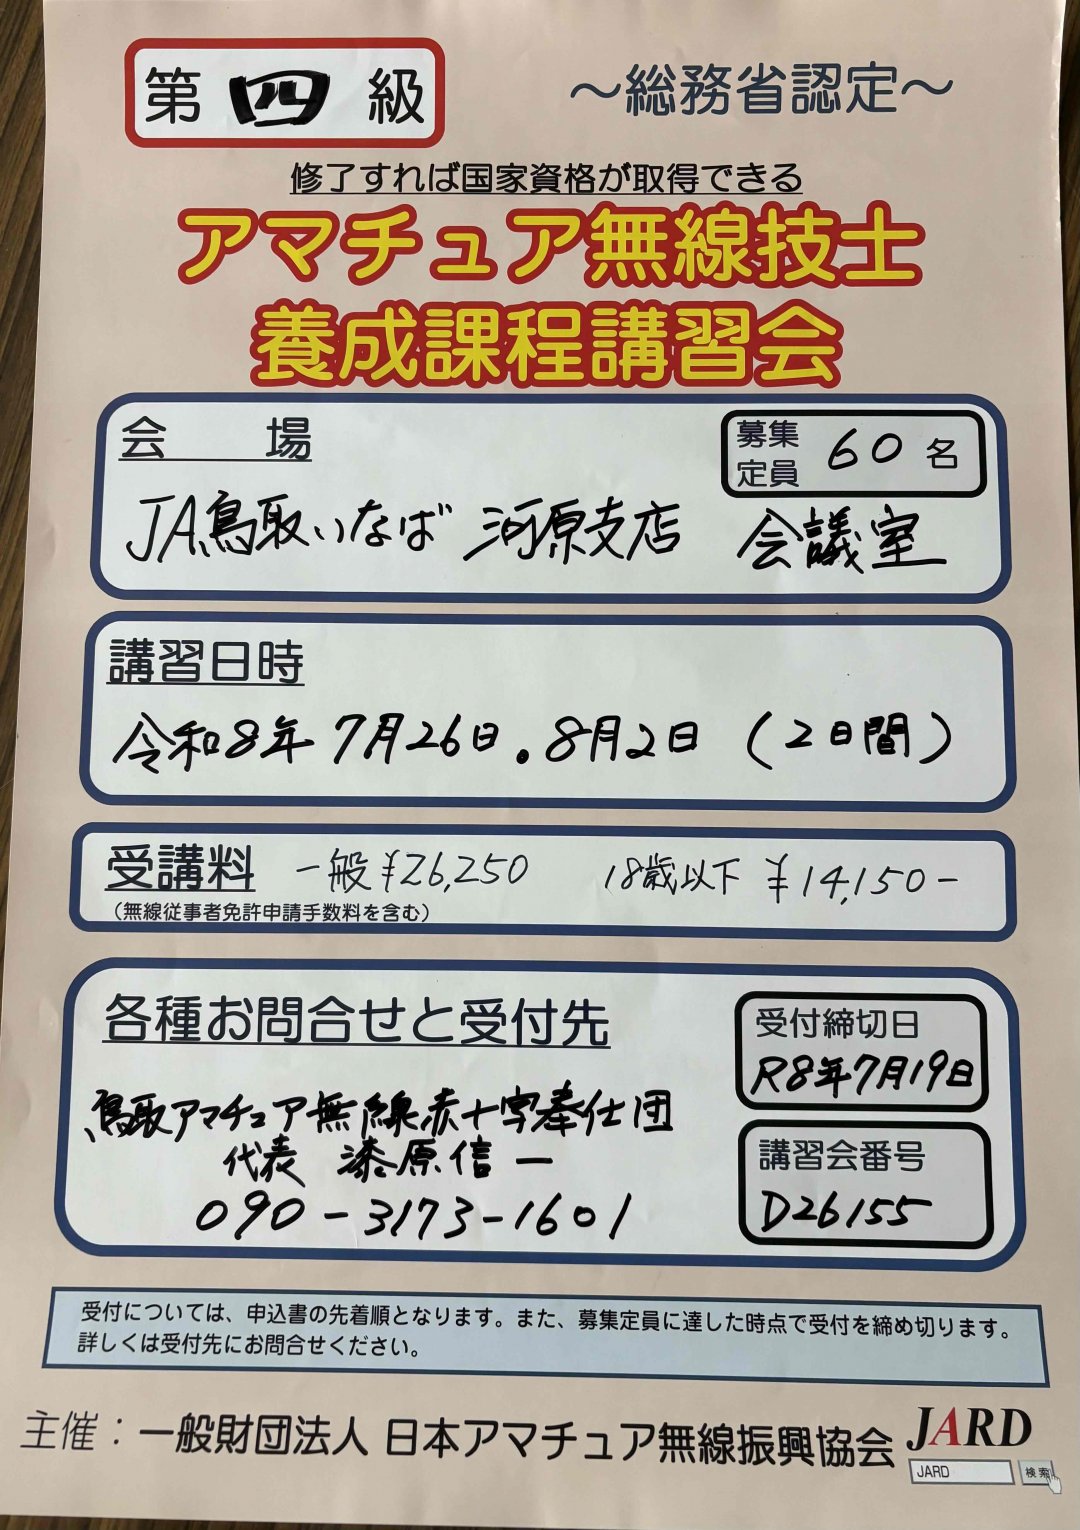 第四級
～総務省認定～
修了すれば国家資格が取得できる
アマチュア無線技士
養成課程講習会
会場
募集定員 60名
JA鳥取いなば 河原支店 会議室
講習日時
令和8年 7月26日.8月2日 (2日間)
受講料 一般 ¥26,250 18歳以下 ¥14,150-
(無線従事者免許申請手数料を含む)
各種お問合せと受付先
鳥取アマチュア無線赤十字奉仕団
代表 漆原信一
090-3173-1601
受付締切日
R8年7月19日
講習会番号
D26155
受付については、申込書の先着順となります。また、募集定員に達した時点で受付を締め切ります。
詳しくは受付先にお問合せください。
主催：一般財団法人 日本アマチュア無線振興協会 JARD
JARD 検索